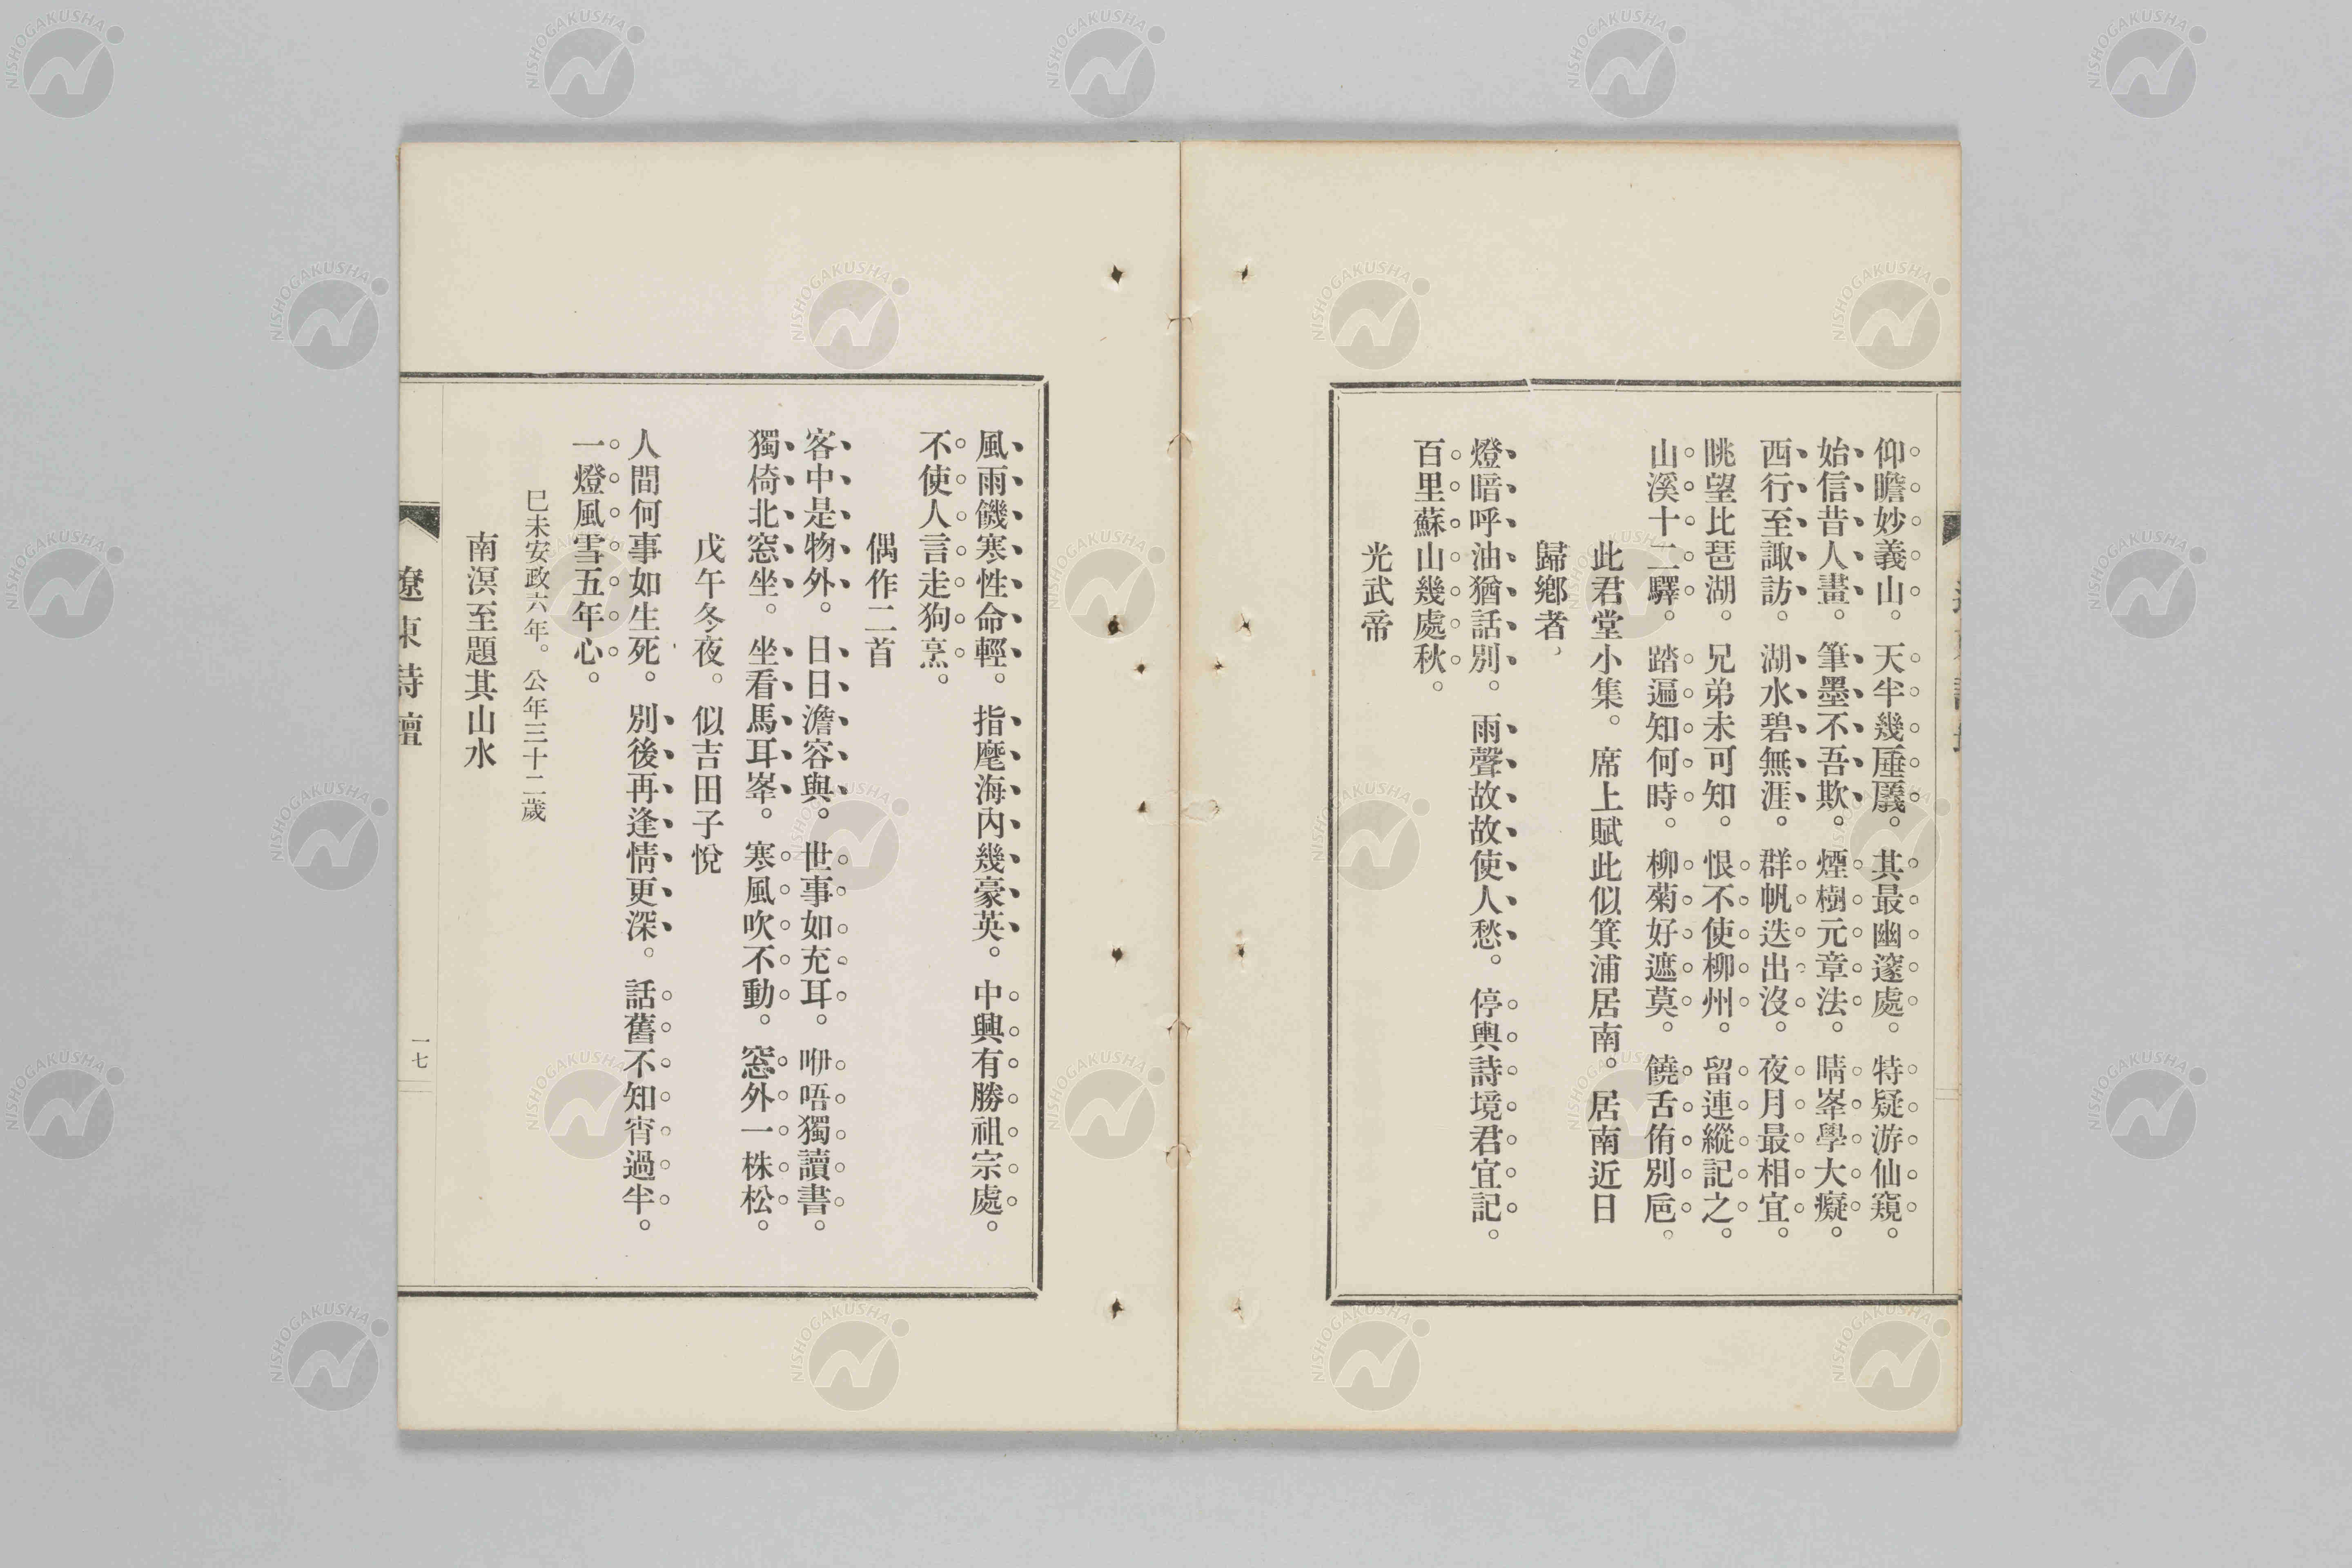 仰瞻妙義山。天半幾厜㕒。其最幽邃處。特疑游仙窺。
始信昔人畫。筆墨不吾欺。煙樹元章法。晴峯學大癡。
西行至諏訪。湖水碧無涯。群帆迭出沒。夜月最相宜。
眺望比琶湖。兄弟未可知。恨不使柳州。留連縱記之。
山溪十二驛。踏遍知何時。柳菊好遮莫。饒舌侑別巵。
此君堂小集。席上賦此似箕浦居南。居南近日
歸鄉者、
燈暗呼油猶話別。雨聲故故使人愁。停輿詩境君宜記。
百里蘇山幾處秋。
光武帝
風雨饑寒性命輕。指麾海內幾豪英。中興有勝祖宗處。
不使人言走狗烹。
偶作二首
客中是物外。日日澹容與。世事如充耳。咿唔獨讀書。
獨倚北窓坐。坐看馬耳峯。寒風吹不動。窓外一株松。
戊午冬夜。似吉田子悅
人間何事如生死。別後再逢情更深。話舊不知宵過半。
一燈風雪五年心。
巳未安政六年。公年三十二歲
南溟至題其山水
遼東詩壇
一七
NISHOGAKUSHA